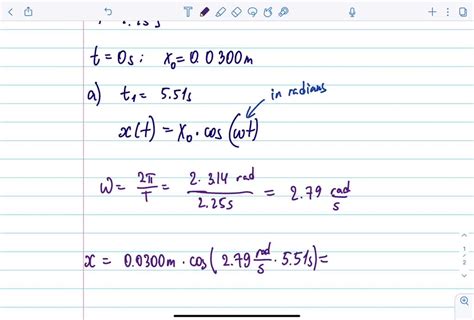 t = 0s : x₀ = 0.0300m
a) t₁ = 5.51s
in radians
x(t) = x₀ · cos(ωt)
ω = 2π/T = 2 · 3.14 rad / 2.25s = 2.79 rad/s
x = 0.0300m · cos(2.79 rad/s · 5.51s) =
1
2